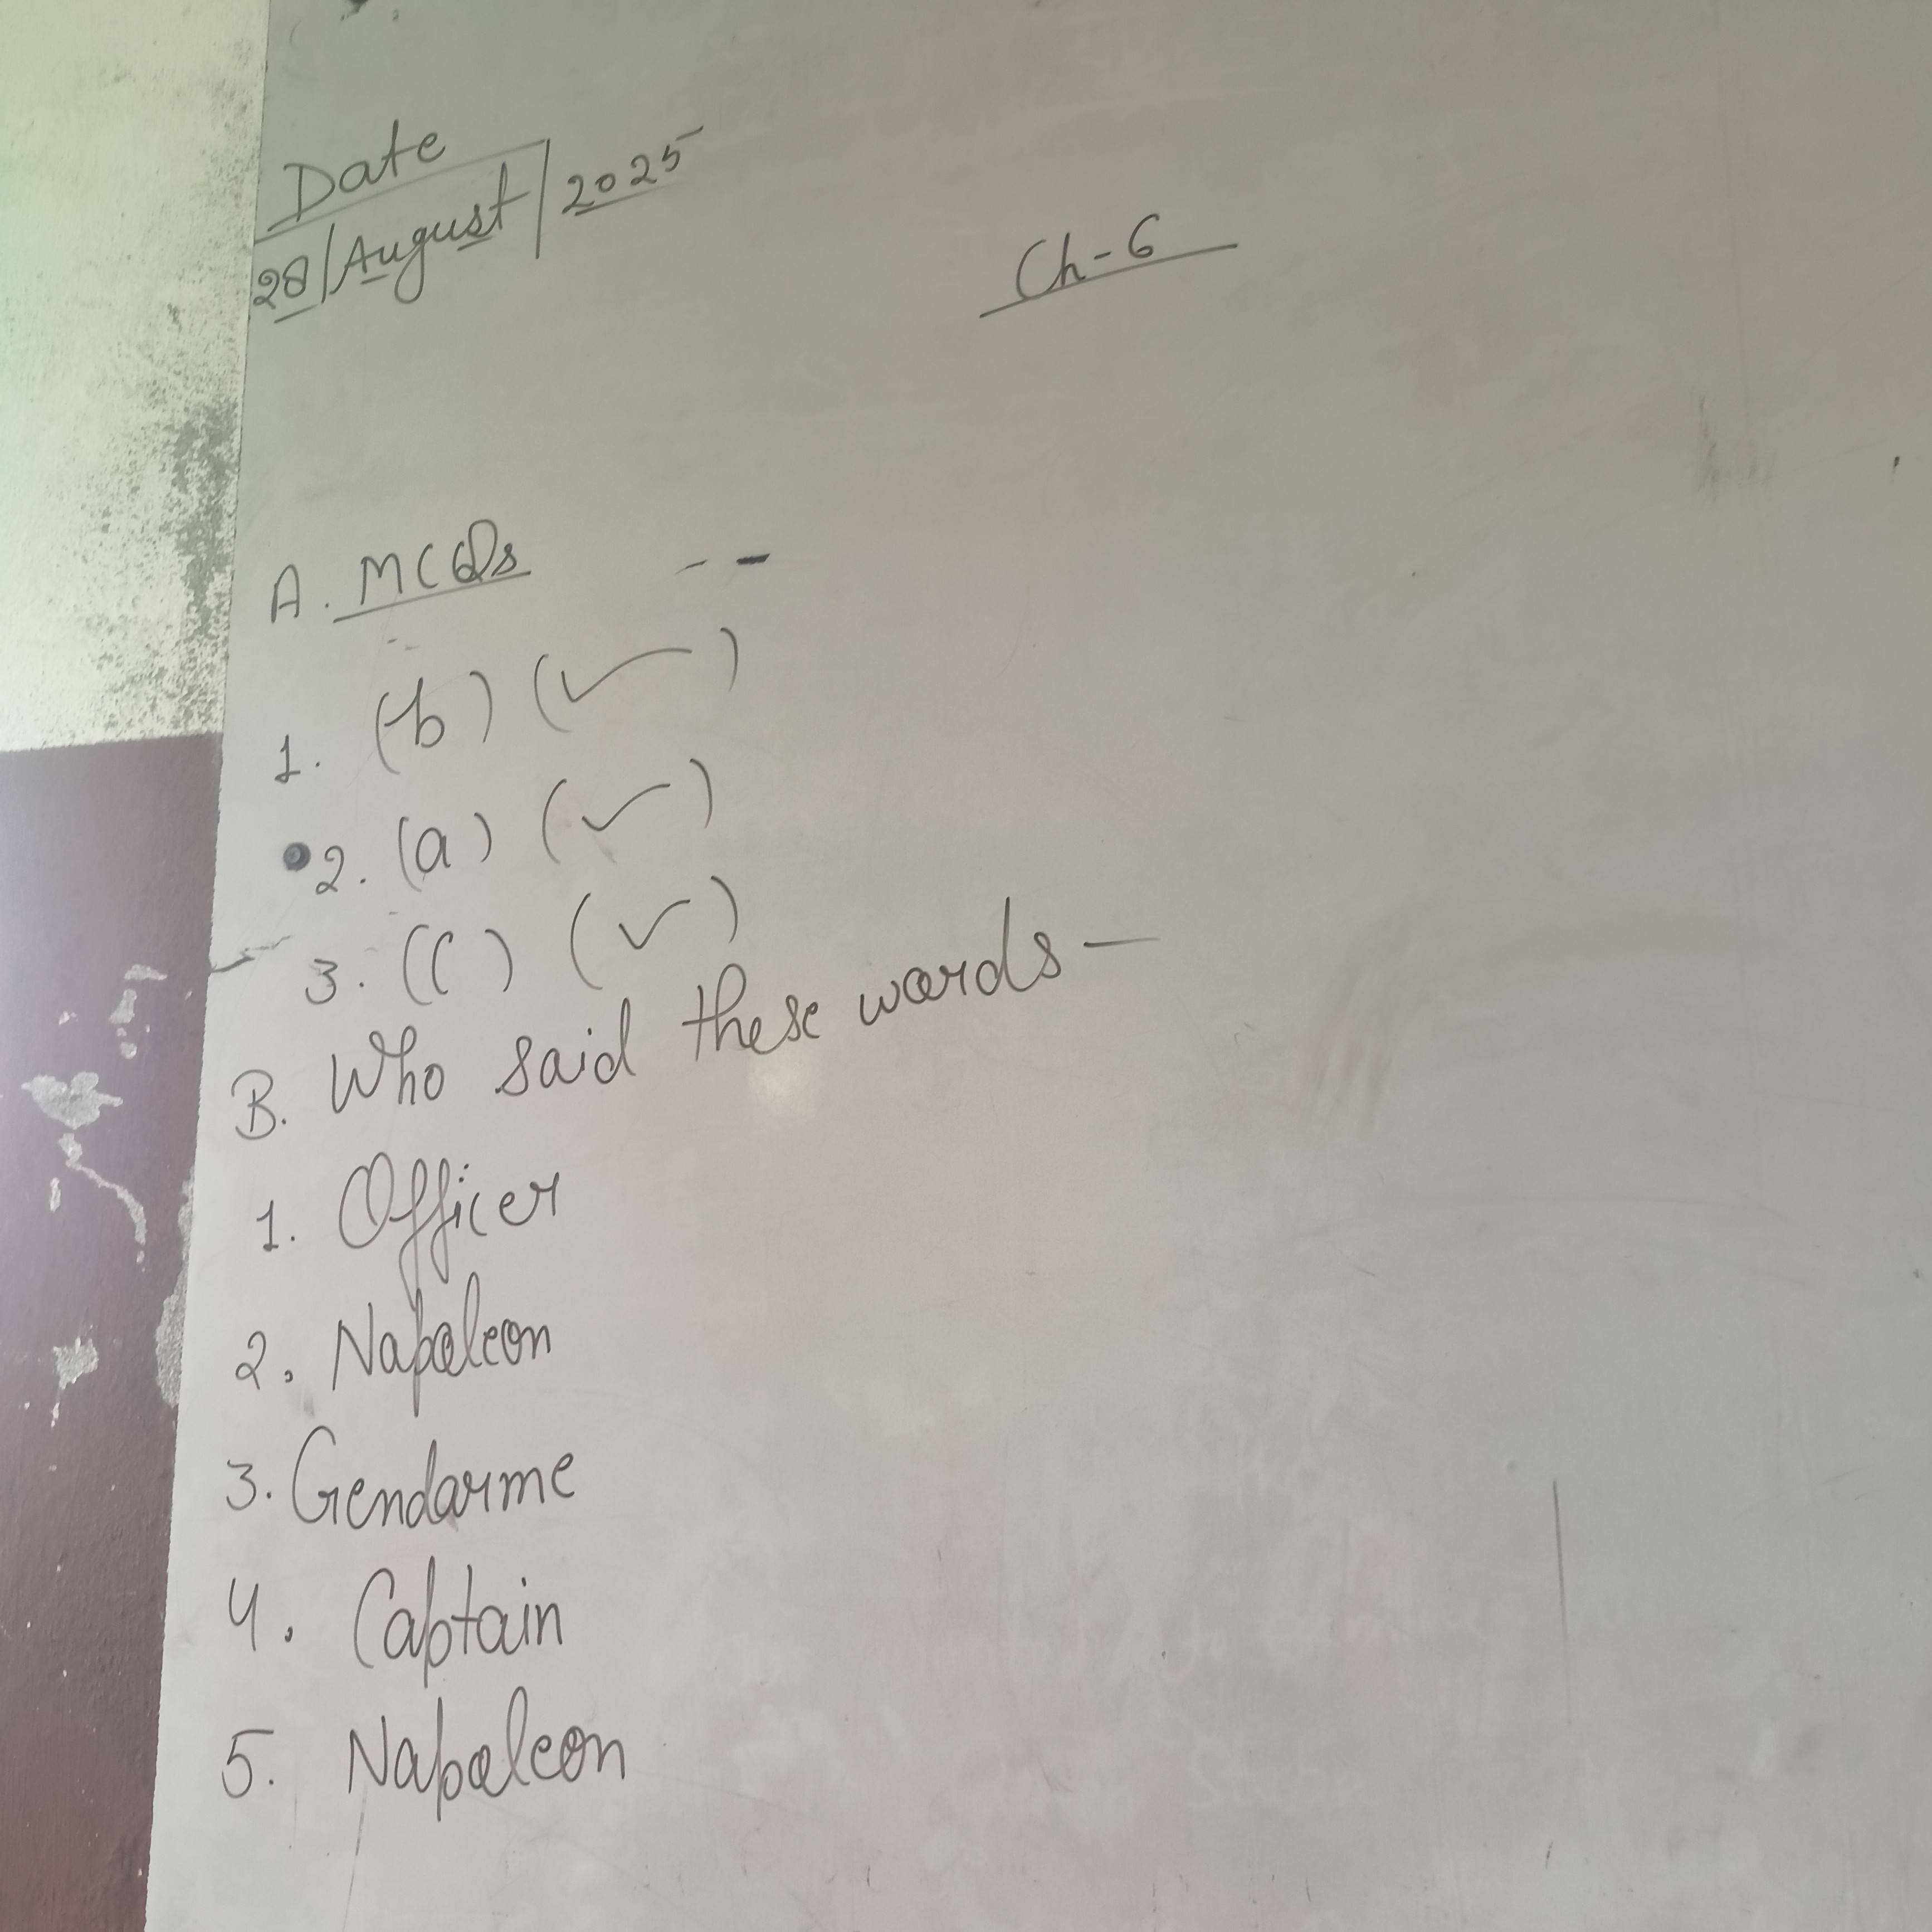 Date
28/August/2025
Ch-6
A. MCQs --
1. (b) (✓)
2. (a) (✓)
3. (c) (✓)
B. Who said these words-
1. Officer
2. Napoleon
3. Gendarme
4. Captain
5. Napoleon